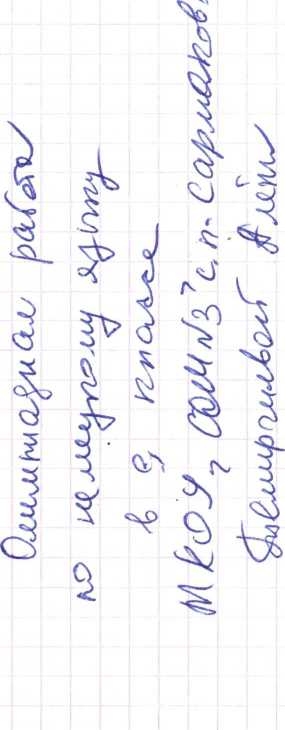 Олимпиадная работа
по немецкому языку
в 9 классе
МКОУ "СОШ №3" с.п. Сармаково